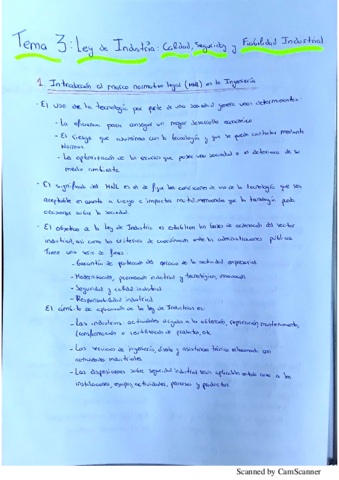 Tema 3: Ley de Industria: Calidad, Seguridad y Fiabilidad Industrial
1. Introducción al marco normativo legal (MNL) en la Ingeniería
· El uso de la tecnología por parte de una sociedad genera unos determinantes:
- La eficiencia para conseguir un mayor desarrollo económico
- El riesgo que asumimos con la tecnología y que se puede controlar mediante
Normas
- La optimización de los servicios que posee una sociedad o el deterioro de su
medio ambiente.
· El significado del MNL es el de fijar las condiciones de uso de la tecnología que sea
aceptable en cuanto a riesgo e impactos medioambientales que la tecnología pueda
ocasionar sobre la sociedad.
· El objetivo de la Ley de Industria es establecer las bases de ordenación del sector
industrial, así como los criterios de coordinación entre las administraciones públicas.
Tiene una serie de fines:
- Garantía de protección del ejercicio de la actividad empresarial
- Modernización, promoción industrial y tecnológica, innovación
- Seguridad y calidad industrial
- Responsabilidad industrial
El ámbito de aplicación de la Ley de Industria es:
- Las industrias: actividades dirigidas a la obtención, reparación, mantenimiento,
transformación o reutilización de productos, etc.
- Los servicios de ingeniería, diseño y asistencia técnica relacionados con
actividades industriales.
- Las disposiciones sobre seguridad industrial serán aplicables en todo caso a las
instalaciones, equipos, actividades, procesos y productos.
Scanned by CamScanner